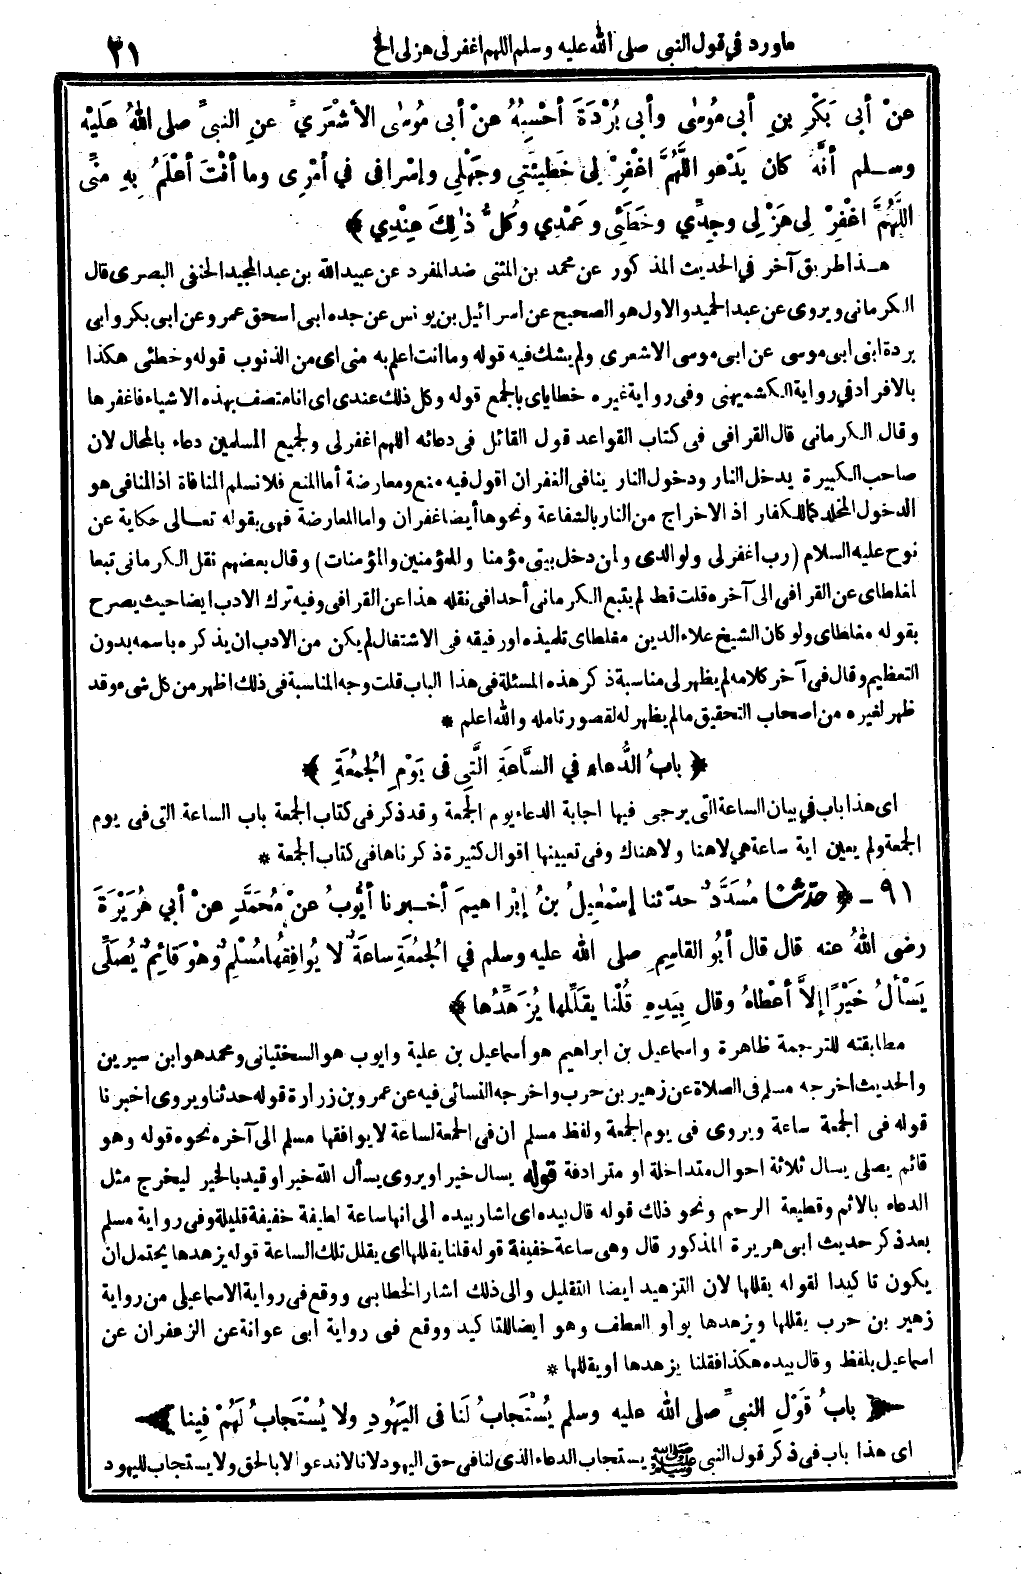 ماورد في قول النبى صلى الله عليه وسلم اللهم اغفر لى هزلى الخ ٣١
عنْ أبى بَكْرِ بنِ أبى مُوسٰى وأبى بُرْدَةَ أحْسِبُهُ عنْ أبى مُوسٰى الأشْعَرِيِّ عنِ النبىِّ صلى اللهُ عَلَيْهِ
وسلم أنَّهُ كان يَدْعو اللَّهُمَّ اغْفِرْ لِى خَطِيئَتِى وجَهْلِي وإسْرافى في أمْرِى وما أنْتَ أعْلَمُ بِهِ مِنِّى
اللَّهُمَّ اغْفِرْ لِى هَزْلِى وجِدِّي وخَطَئِى وعَمْدِي وكُلُّ ذٰلِكَ عِنْدِي ﴾
هذا طريق آخر في الحديث المذكور عن محمد بن المثنى ضد المفرد عن عبيد الله بن عبد المجيد الحنفى البصرى قال
الكرمانى ويروى عن عبد الحميد والاول هو الصحيح عن اسرائيل بن يونس عن جده ابى اسحق عمرو عن ابى بكر وابى
بردة ابنى ابى موسى عن ابى موسى الاشعرى ولم يشك فيه قوله وما انت اعلم به منى اى من الذنوب قوله وخطئى هكذا
بالافراد في رواية الكشميهنى وفى رواية غيره خطاياى بالجمع قوله وكل ذلك عندى اى انا متصف بهذه الاشياء فاغفرها
وقال الكرمانى قال القرافى فى كتاب القواعد قول القائل فى دعائه اللهم اغفر لى ولجميع المسلمين دعاء بالمحال لان
صاحب الكبيرة يدخل النار ودخول النار ينافى الغفران اقول فيه منع ومعارضة أما المنع فلا نسلم المنافاة اذ المنافى هو
الدخول المخلد كما للكفار اذ الاخراج من النار بالشفاعة ونحوها أيضا غفران واما المعارضة فهى بقوله تعالى حكاية عن
نوح عليه السلام (رب اغفر لى ولوالدى ولمن دخل بيتى مؤمنا وللمؤمنين والمؤمنات) وقال بعضهم نقل الكرمانى تبعا
لمغلطاى عن القرافى الى آخره قلت قط لم يتبع الكرمانى أحدا فى نقله هذا عن القرافى وفيه ترك الادب ايضا حيث يصرح
بقوله مغلطاى ولو كان الشيخ علاء الدين مغلطاى تلميذه او رفيقه فى الاشتغال لم يكن من الادب ان يذكره باسمه بدون
التعظيم وقال فى آخر كلامه لم يظهر لى مناسبة ذكر هذه المسئلة فى هذا الباب قلت وجه المناسبة فى ذلك اظهر من كل شىء وقد
ظهر لغيره من اصحاب التحقيق ما لم يظهر له لقصور تامله والله اعلم *
﴿ بابُ الدُّعاءِ في السَّاعَةِ الَّتِى فى يَوْمِ الجُمُعَةِ ﴾
اى هذا باب في بيان الساعة التى يرجى فيها اجابة الدعاء يوم الجمعة وقد ذكر فى كتاب الجمعة باب الساعة التى فى يوم
الجمعة ولم يعين اية ساعة هى لاهنا ولا هناك وفى تعيينها اقوال كثيرة ذكرناها فى كتاب الجمعة *
٩١ - ﴿ حدّثنا مُسَدَّدٌ حدّثنا إسْمٰعِيلُ بنُ إبْراهيمَ أخبرنا أيُّوبُ عنْ مُحَمَّدٍ عنْ أبي هُرَيْرَةَ
رضى اللهُ عنه قال قال أبُو القاسِمِ صلى الله عليه وسلم في الجُمُعَةِ ساعَةٌ لا يُوافِقُها مُسْلِمٌ وهْوَ قَائِمٌ يُصَلِّى
يَسْألُ خَيْرًا إلاَّ أعْطاهُ وقال بِيَدِهِ قُلْنا يقَلِّلها يُزَهِّدُها ﴾
مطابقته للترجمة ظاهرة واسماعيل بن ابراهيم هو أسماعيل بن علية وايوب هو السختيانى ومحمد هو ابن سيرين
والحديث اخرجه مسلم فى الصلاة عن زهير بن حرب واخرجه النسائى فيه عن عمرو بن زرارة قوله حدثنا ويروى اخبرنا
قوله فى الجمعة ساعة ويروى فى يوم الجمعة ولفظ مسلم ان فى الجمعة لساعة لا يوافقها مسلم الى آخره نحوه قوله وهو
قائم يصلى يسال ثلاثة احوال متداخلة او مترادفة قوله يسال خيرا ويروى يسأل الله خيرا وقيد بالخير ليخرج مثل
الدعاء بالاثم وقطيعة الرحم ونحو ذلك قوله قال بيده اى اشار بيده الى انها ساعة لطيفة خفيفة قليلة وفى رواية مسلم
بعد ذكر حديث ابى هريرة المذكور قال وهى ساعة خفيفة قوله قلنا يقللها اى يقلل تلك الساعة قوله يزهدها يحتمل ان
يكون تاكيدا لقوله يقللها لان التزهيد ايضا التقليل والى ذلك اشار الخطابى ووقع فى رواية الاسماعيلى من رواية
زهير بن حرب يقللها ويزهدها بواو العطف وهو ايضا للتاكيد ووقع فى رواية ابى عوانة عن الزعفران عن
اسماعيل بلفظ وقال بيده هكذا فقلنا يزهدها او يقللها *
﴿ بابُ قَوْلِ النبىِّ صلى الله عليه وسلم يُسْتَجابُ لَنا فى اليَهُودِ ولا يُسْتَجابُ لَهُمْ فِينا ﴾
اى هذا باب فى ذكر قول النبى ﷺ يستجاب الدعاء الذى لنا فى حق اليهود لانا لا ندعو الا بالحق ولا يستجاب لليهود